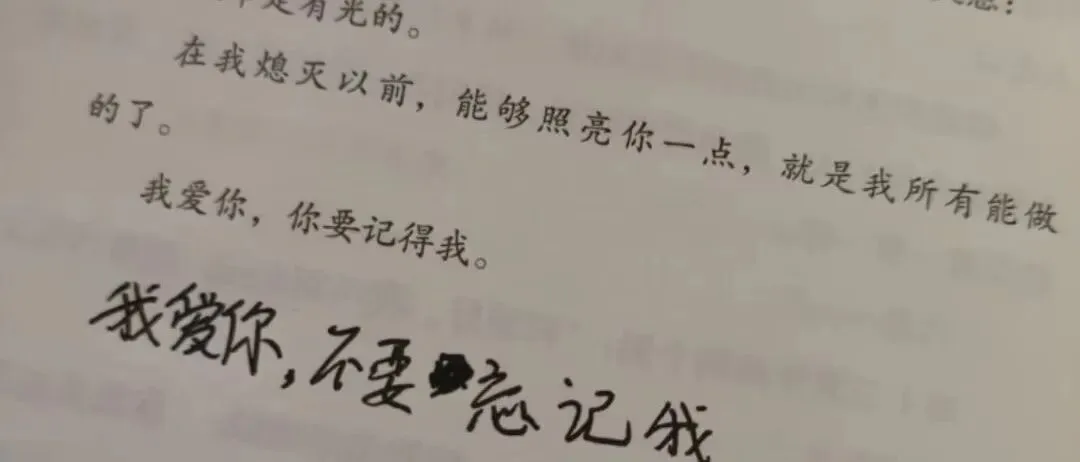 是有光的。
在我熄灭以前，能够照亮你一点，就是我所有能做
的了。
我爱你，你要记得我。
我爱你，不要忘记我